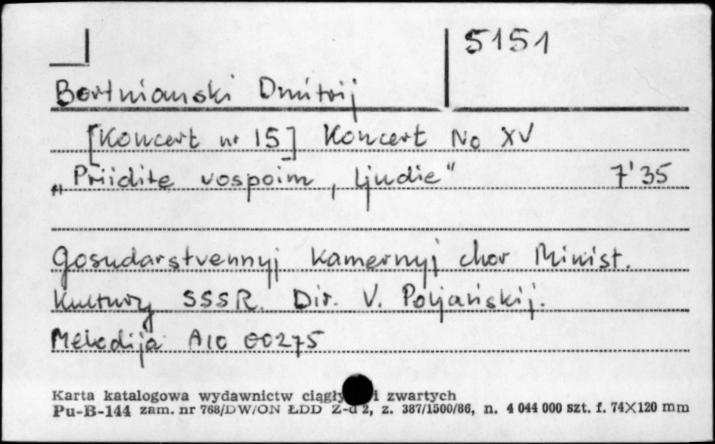 5151
Bortnianski Dmitrij
[Koncert nr 15] Koncert No XV
„Priidite vospoim, ljudie" 7'35
Gosudarstvennyj kamernyj chor Minist.
Kultury SSSR. Dir. V. Poljańskij.
Melodija A10 00275
Karta katalogowa wydawnictw ciągły i zwartych
Pu-B-144 zam. nr 768/DW/ON ŁDD Z-d 2, z. 387/1500/86, n. 4 044 000 szt. f. 74X120 mm